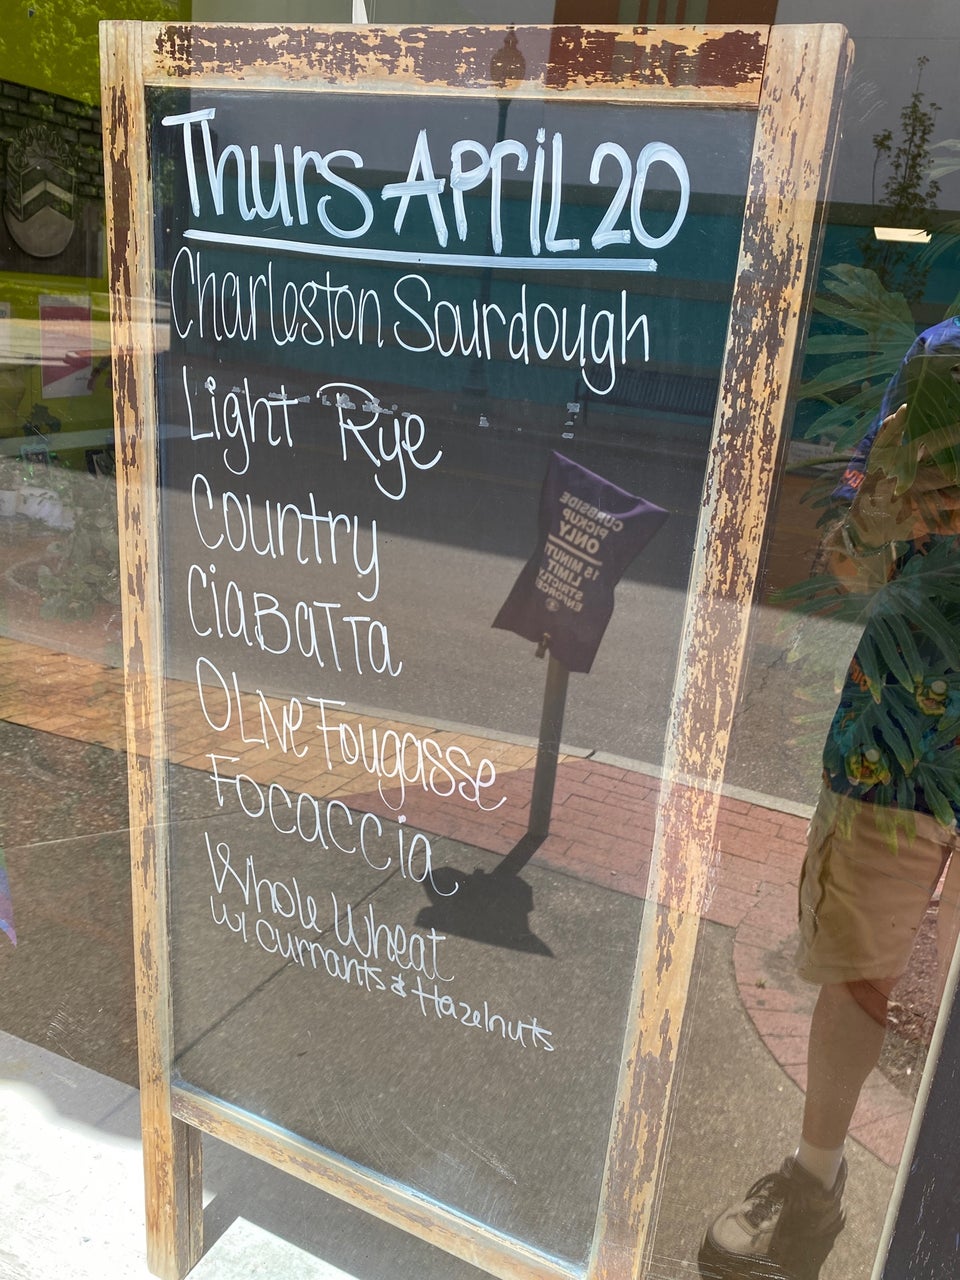 Thurs APRIL 20
Charleston Sourdough
Light Rye
Country
CIABATTA
OLIVE Fougasse
Focaccia
Whole Wheat
w/ Currants & Hazelnuts
CURBSIDE
PICKUP
ONLY
15 MINUTE
LIMIT
STRICTLY
ENFORCED